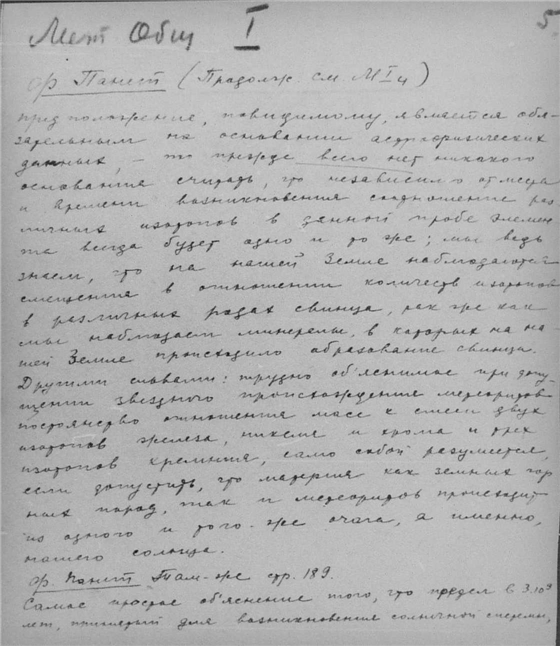 Мет Общ I
5
Ф. Панет (Продолж. см М I ч)
предположение, повидимому, является обя-
зательным на основании астрофизических
данных, – то прежде всего нет никакого
основания считать, что независимо от места
и времени возникновения соотношение раз-
личных изотопов в данной пробе элемен
та всегда будет одно и то же; мы ведь
знаем, что на нашей Земле наблюдаются
смещения в отношении количеств изотопов
в различных родах свинца, так же как
мы наблюдаем минералы, в которых на на
шей Земле происходило образование свинца.
Другими словами: трудно об'яснимое при допу
щении звездного происхождения метеоритов
постоянство отношения масс к смеси двух
изотопов железа, никеля и хрома и трех
изотопов кремния, само собой разумеется,
если допустить, что материя как земных гор
ных пород, так и метеоритов происходит
из одного и того-же очага, а именно,
нашего солнца.
Ф. Панет Там-же стр. 189.
Самое простое об'яснение того, что предел в 3.10⁹
лет, принятый для возникновения солнечной системы,